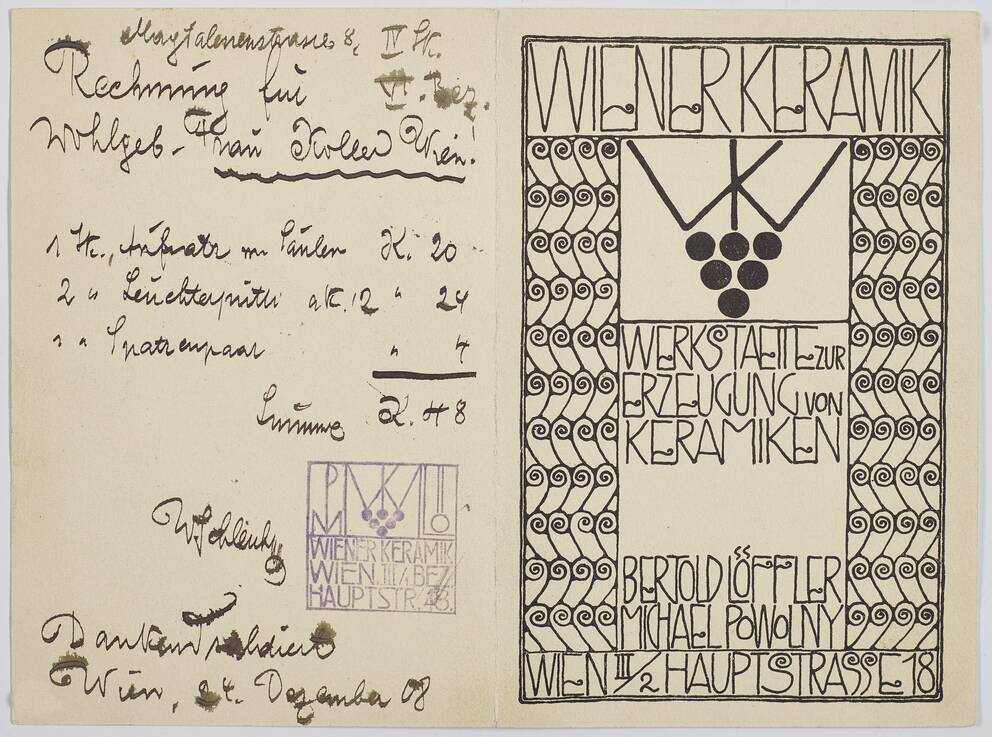 Magdalenenstrasse 8, IV St.
Rechnung für VI. Bez.
Wohlgeb. Frau Koller Wien!
1 St., Aufsatz m. Säulen K. 20
2 " Leuchterputti a K. 12 " 24
" " Spatzenpaar " 4
Summe K. 48
Dankend saldiert
Wien, 24. Dezember 08
PM WK LÖ
WIENER KERAMIK
WIEN. III/1 BEZ.
HAUPTSTR.
WIENER KERAMIK
WK
WERKSTAETTE ZUR
ERZEUGUNG VON
KERAMIKEN
BERTOLD LÖFFLER
MICHAEL POWOLNY
WIEN III/2 HAUPTSTRASSE 18